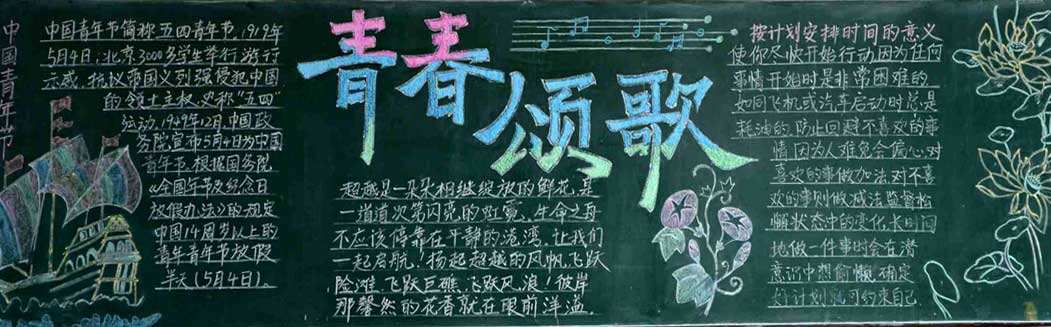 中国青年节
中国青年节简称五四青年节,1919年
5月4日,北京3000名学生举行游行
示威,抗议帝国义列强侵犯中国
的领土主权,史称“五四”
运动,1949年12月,中国政
务院宣布5月4日为中国
青年节,根据国务院
《全国年节及纪念日
放假办法》的规定
中国14周岁以上的
青年青年节放假
半天(5月4日)。
青春颂歌
超越是一朵朵相继绽放的鲜花,是
一道道次第闪亮的虹霓、生命之舟
不应该停靠在平静的港湾,让我们
一起启航!扬起超越的风帆,飞跃
险滩,飞跃巨礁,飞跃风浪!彼岸
那馨然的花香就在眼前洋溢
按计划安排时间的意义
使你尽快开始行动因为任何
事情开始时是非常困难的
如同飞机或汽车启动时总是
耗油的,防止回避不喜欢的事
情,因为人难免会偏心对
喜欢的事做加法对不喜
欢的事则做减法监督松
懈状态中的变化,长时间
地做一件事时会在潜
意识中想偷懒,确定
好计划就可约束自己